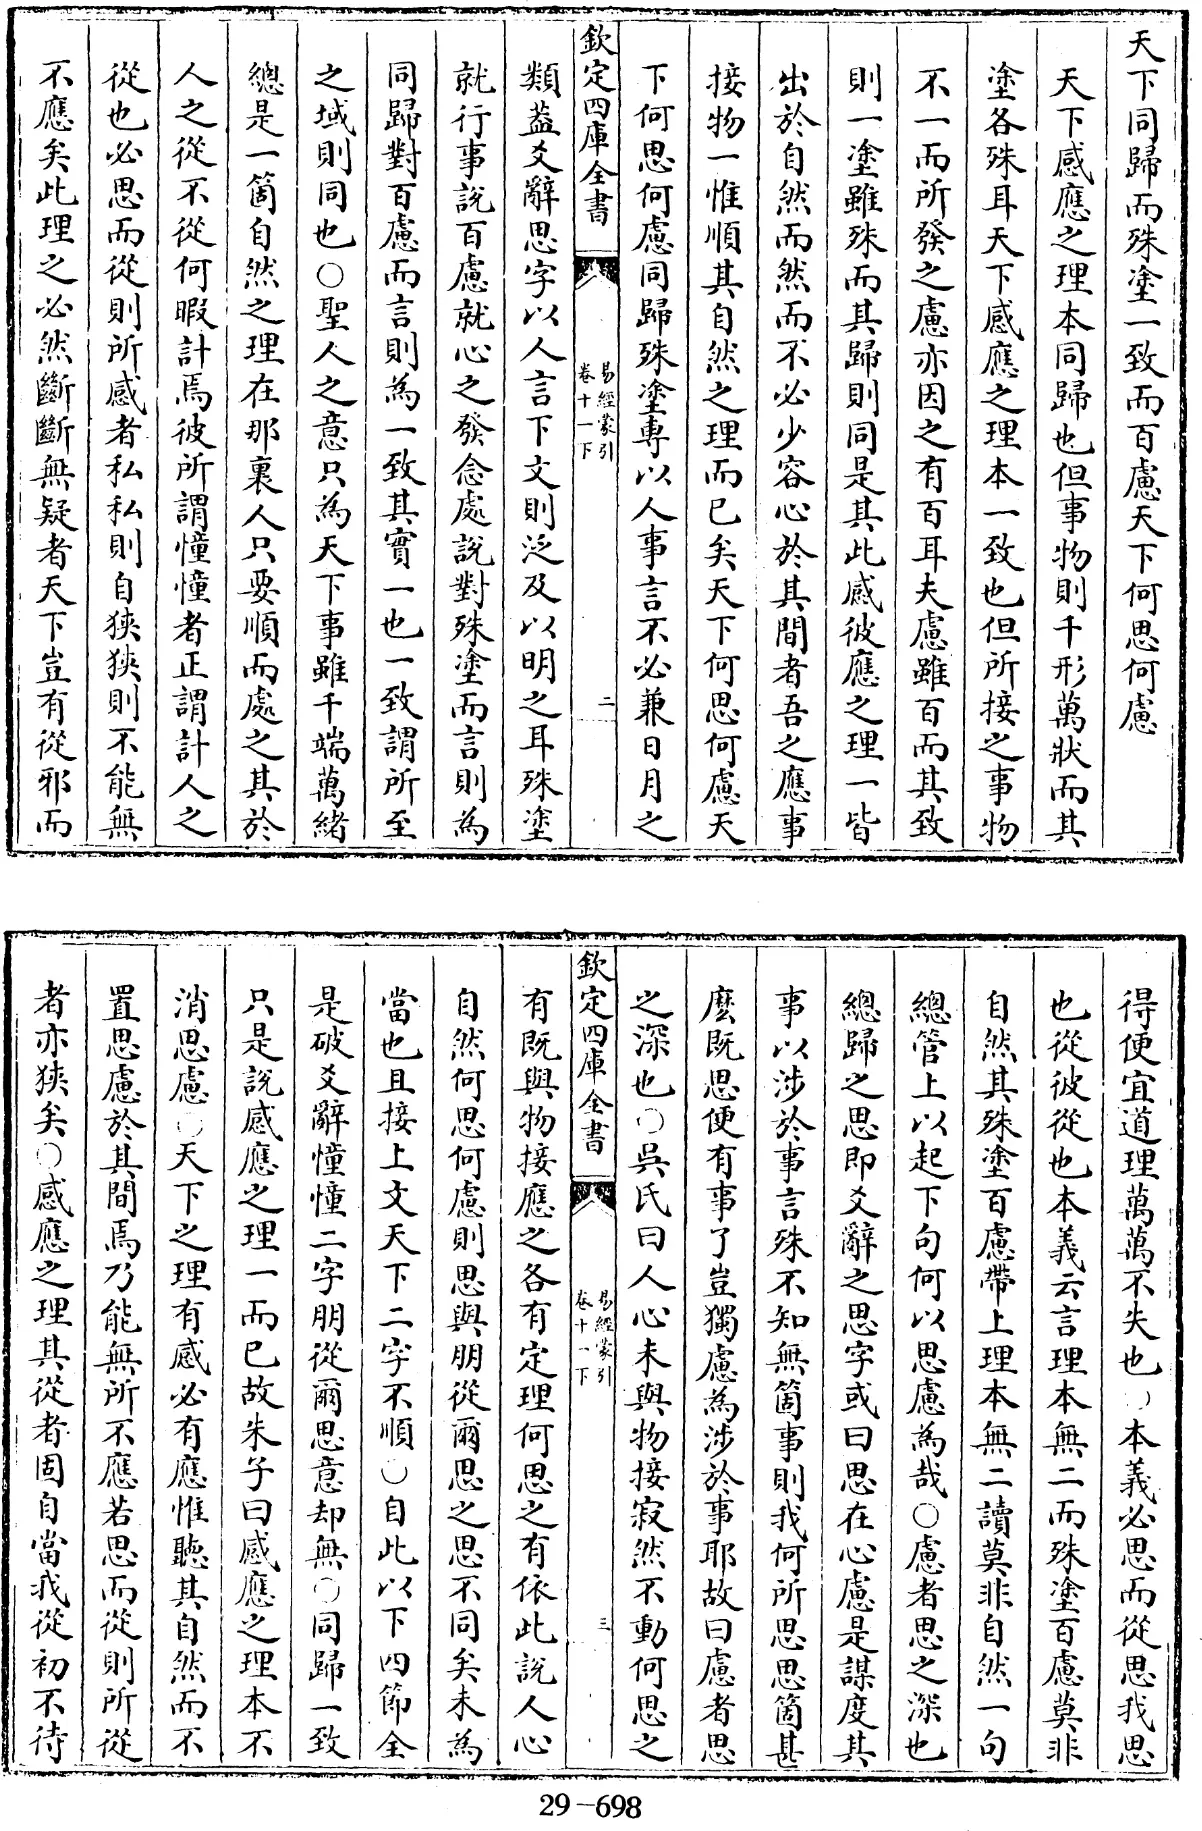 天下同歸而殊塗一致而百慮天下何思何慮
天下感應之理本同歸也但事物則千形萬狀而其
塗各殊耳天下感應之理本一致也但所接之事物
不一而所發之慮亦因之有百耳夫慮雖百而其致
則一塗雖殊而其歸則同是其此感彼應之理一皆
出於自然而然而不必少容心於其間者吾之應事
接物一惟順其自然之理而已矣天下何思何慮天
下何思何慮同歸殊塗專以人事言不必兼日月之
欽定四庫全書
易經蒙引
卷十一下
二
類蓋爻辭思字以人言下文則泛及以明之耳殊塗
就行事說百慮就心之發念處說對殊塗而言則為
同歸對百慮而言則為一致其實一也一致謂所至
之域則同也○聖人之意只為天下事雖千端萬緒
總是一箇自然之理在那裏人只要順而處之其於
人之從不從何暇計焉彼所謂憧憧者正謂計人之
從也必思而從則所感者私私則自狹狹則不能無
不應矣此理之必然斷斷無疑者天下豈有從邪而
得便宜道理萬萬不失也○本義必思而從思我思
也從彼從也本義云言理本無二而殊塗百慮莫非
自然其殊塗百慮帶上理本無二讀莫非自然一句
總管上以起下句何以思慮為哉○慮者思之深也
總歸之思即爻辭之思字或曰思在心慮是謀度其
事以涉於事言殊不知無箇事則我何所思思箇甚
麼既思便有事了豈獨慮為涉於事耶故曰慮者思
之深也○吳氏曰人心未與物接寂然不動何思之
欽定四庫全書
易經蒙引
卷十一下
三
有既與物接應之各有定理何思之有依此說人心
自然何思何慮則思與朋從爾思之思不同矣未為
當也且接上文天下二字不順○自此以下四節全
是破爻辭憧憧二字朋從爾思意却無○同歸一致
只是說感應之理一而已故朱子曰感應之理本不
消思慮○天下之理有感必有應惟聽其自然而不
置思慮於其間焉乃能無所不應若思而從則所從
者亦狹矣○感應之理其從者固自當我從初不待
29-698